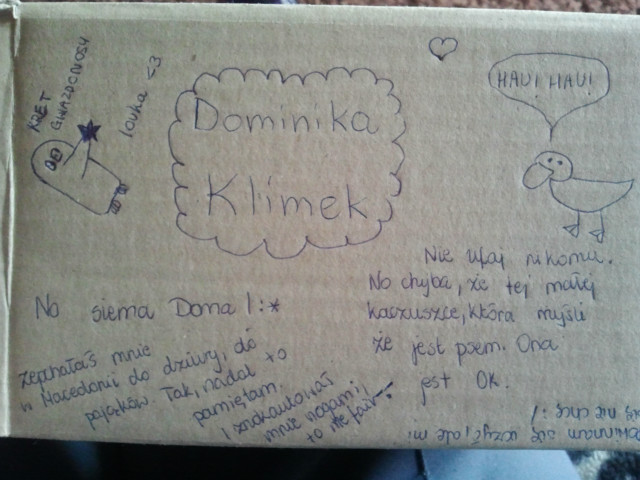 KRET
GWIAZDONOSY
louka <3
Dominika
Klimek
HAU! HAU!
No siema Doma!:*
Zepchałaś mnie
w Macedonii do dziury, do
pająków. Tak, nadal to
pamiętam.
I znokautowałaś
mnie nogami,
to nie fair
Nie ufaj nikomu.
No chyba, że tej małej
kaczuszce, która myśli
że jest psem. Ona
jest OK.
powinnam się uczyć, ale mi
się nie chcę :/